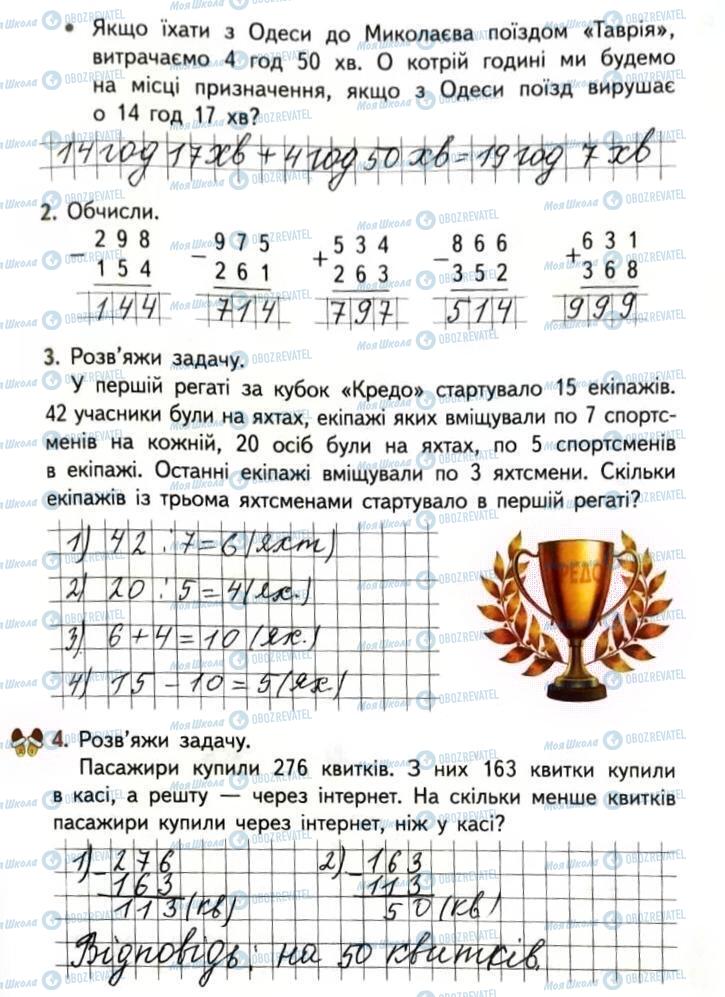 • Якщо їхати з Одеси до Миколаєва поїздом «Таврія»,
витрачаємо 4 год 50 хв. О котрій годині ми будемо
на місці призначення, якщо з Одеси поїзд вирушає
о 14 год 17 хв?
14 год 17 хв + 4 год 50 хв = 19 год 7 хв
2. Обчисли.
298 975 534 866 631
− − + − +
154 261 263 352 368
144 714 797 514 999
3. Розв'яжи задачу.
У першій регаті за кубок «Кредо» стартувало 15 екіпажів.
42 учасники були на яхтах, екіпажі яких вміщували по 7 спортс-
менів на кожній, 20 осіб були на яхтах, по 5 спортсменів
в екіпажі. Останні екіпажі вміщували по 3 яхтсмени. Скільки
екіпажів із трьома яхтсменами стартувало в першій регаті?
1) 42 : 7 = 6 (яхт)
2) 20 : 5 = 4 (ях.)
3) 6 + 4 = 10 (ях.)
4) 15 − 10 = 5 (ях.)
КРЕДО
4. Розв'яжи задачу.
Пасажири купили 276 квитків. З них 163 квитки купили
в касі, а решту — через інтернет. На скільки менше квитків
пасажири купили через інтернет, ніж у касі?
1) − 276 2) − 163
163 113
113 (кв) 50 (кв)
Відповідь: на 50 квитків.
Моя Школа OBOZREVATEL